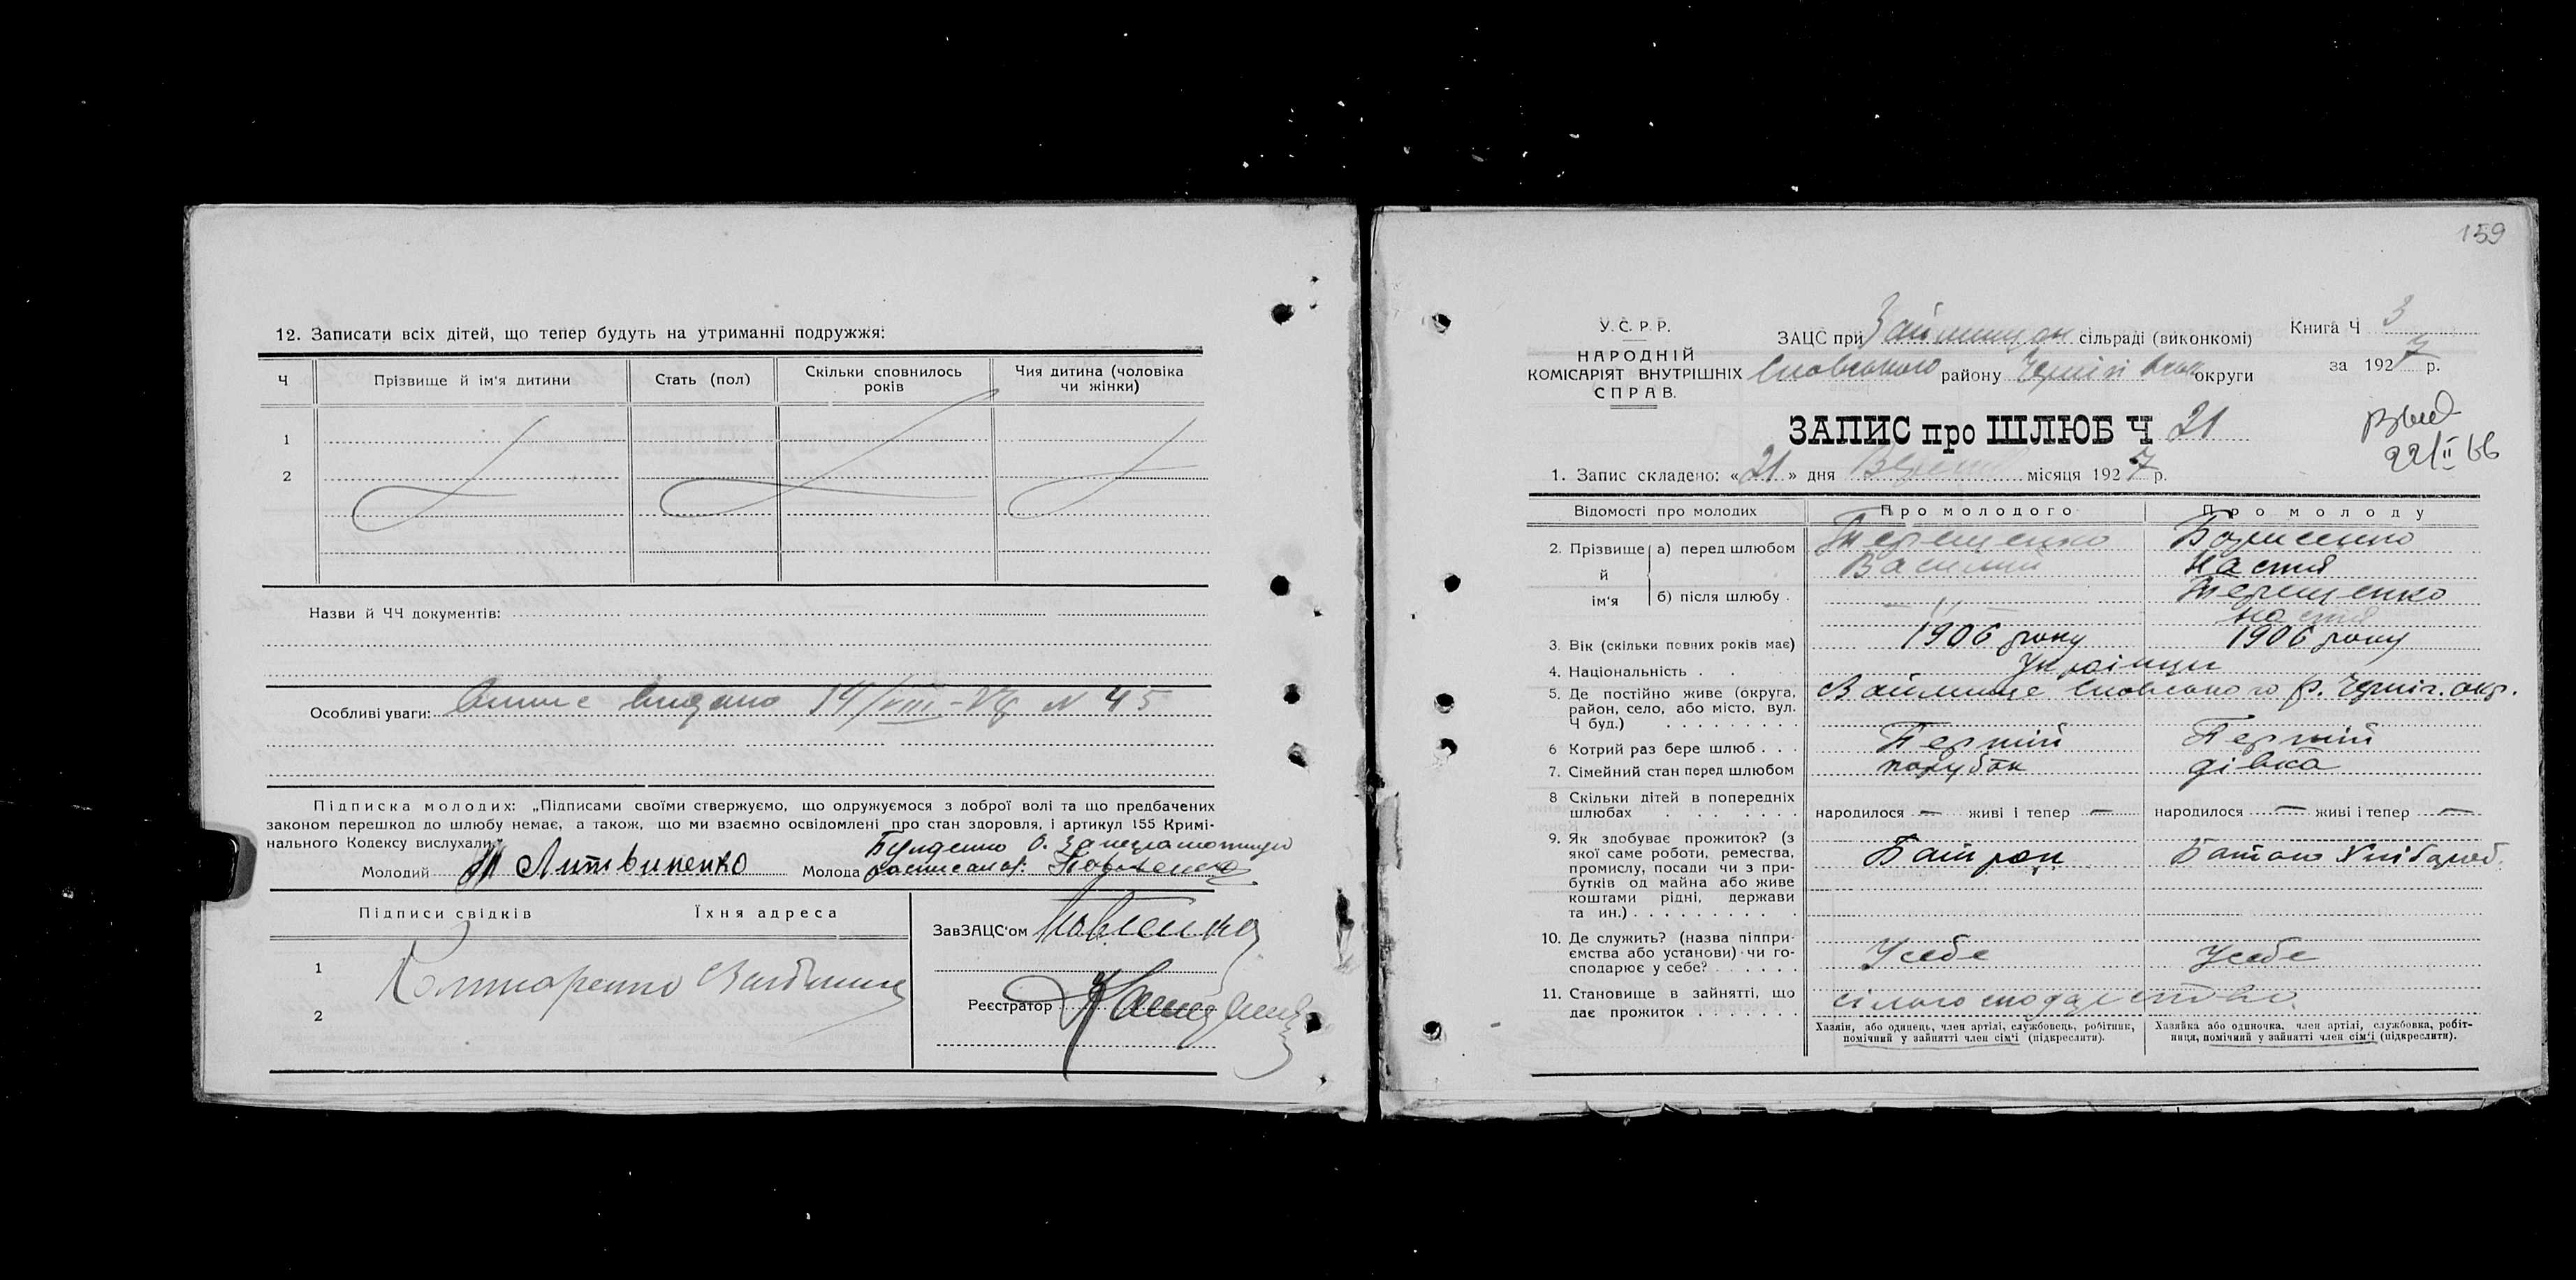 12. Записати всіх дітей, що тепер будуть на утриманні подружжя:
Ч Прізвище й ім'я дитини Стать (пол) Скільки сповнилось років Чия дитина (чоловіка чи жінки)
1
2
Назви й ЧЧ документів:
Особливі уваги: видано 14/VIII N 45
Підписка молодих: „Підписами своїми стверджуємо, що одружуємося з доброї волі та що предбачених
законом перешкод до шлюбу немає, а також, що ми взаємно освідомлені про стан здоровля, і артикул 155 Кримі-
нального Кодексу вислухали."
Молодий Литвиненко Молода
Підписи свідків Їхня адреса
ЗавЗАЦС'ом Павленко
1
2
Реєстратор
159
У. С. Р. Р.
НАРОДНІЙ
КОМІСАРІЯТ ВНУТРІШНІХ
СПРАВ.
ЗАЦС при Займищан сільраді (виконкомі)
Сновського району Черніг округи
Книга Ч 3
за 1927 р.
ЗАПИС про ШЛЮБ Ч 21
22/II 66
1. Запис складено: «21» дня місяця 1927 р.
Відомості про молодих Про молодого Про молоду
2. Прізвище й ім'я а) перед шлюбом Терещенко Василий Настя
б) після шлюбу — " — Терещенко Настя
3. Вік (скільки повних років має) 1906 року 1906 року
4. Національність Українці
5. Де постійно живе (округа, район, село, або місто, вул. Ч буд.) Займище Сновського р. Черніг. окр.
6 Котрий раз бере шлюб Перший Перший
7. Сімейний стан перед шлюбом парубок дівка
8 Скільки дітей в попередніх шлюбах народилося — живі і тепер — народилося — живі і тепер —
9. Як здобуває прожиток? (з
якої саме роботи, ремества,
промислу, посади чи з при-
бутків од майна або живе
коштами рідні, держави
та ин.)
10. Де служить? (назва підпри-
ємства або установи) чи го-
сподарює у себе? У себе У себе
11. Становище в зайнятті, що
дає прожиток
Хазяїн, або одинець, член артілі, службовець, робітник,
помічний у зайнятті член сім'ї (підкреслити).
Хазяйка або одиночка, член артілі, службовка, робіт-
ниця, помічний у зайнятті член сім'ї (підкреслити).